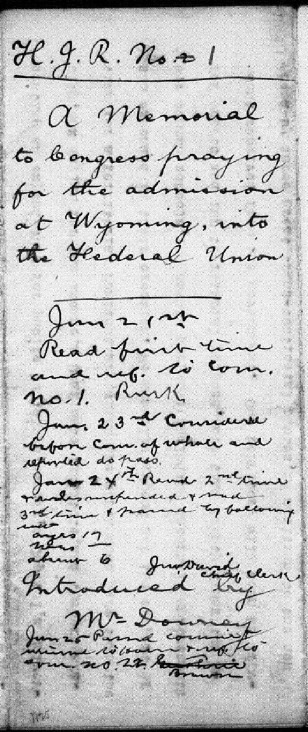 H. J. R. No. 1
A Memorial
to Congress praying
for the admission
at Wyoming, into
the Federal Union
Jan 21st
Read first time
and ref. to Com.
No. 1. Rusk
Jan, 23rd Considered
before Com. of whole and
reported do pass.
Jan 24th Read 2nd time
& rules suspended & read
3rd time & passed by following
vote
ayes 17
noes —
absent 6
Jno David
Chief Clerk
Introduced by
Mr Downey
Jan 25
com. no. 22.
Brown